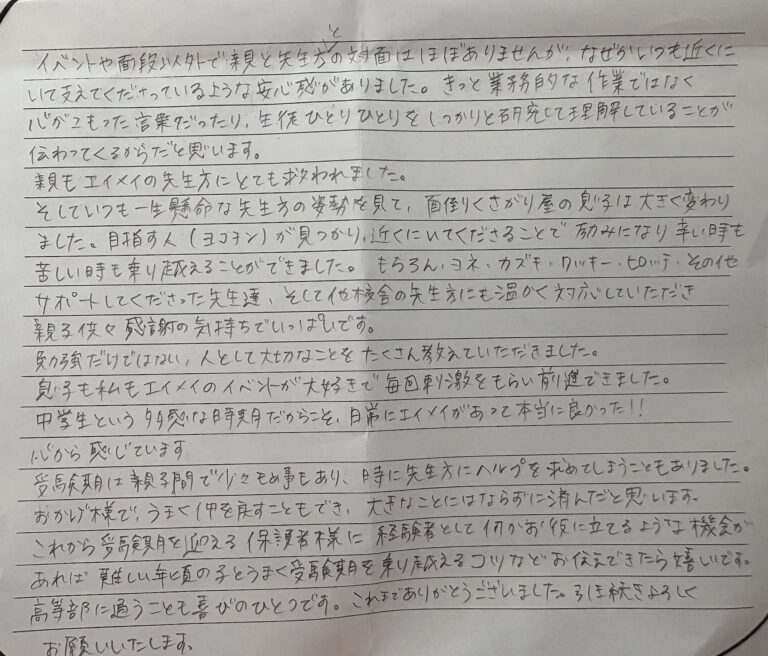 イベントや面段以外で親と先生方との対面はほぼありませんが、なぜかいつも近くに
いて支えてくださっているような安心感がありました。きっと業務的な作業ではなく
心がこもった言葉だったり、生徒ひとりひとりをしっかりと研究して理解していることが
伝わってくるからだと思います。
親もエイメイの先生方にとても救われました。
そしていつも一生懸命な先生方の姿勢を見て、面倒くさがり屋の息子は大きく変わり
ました。目指す人(ヨコチン)が見つかり、近くにいてくださることで励みになり辛い時も
苦しい時も乗り越えることができました。もちろん、ヨネ・カズキ・ワッキー・ヒロッテ・その他
サポートしてくださった先生達、そして他校舎の先生方にも温かく対応していただき
親子供々感謝の気持ちでいっぱいです。
勉強だけではない、人として大切なことをたくさん教えていただきました。
息子も私もエイメイのイベントが大好きで毎回刺激をもらい前進できました。
中学生という多感な時期だからこそ、日常にエイメイがあって本当に良かった!!
心から感じています
受験期は親子間で少々もめ事もあり、時に先生方にヘルプを求めてしまうこともありました。
おかげ様で、うまく仲を戻すこともでき、大きなことにはならずに済んだと思います。
これから受験期を迎える保護者様に経験者として何かお役に立てるような機会が
あれば難しい年頃の子とうまく受験期を乗り越えるコツなどお伝えできたら嬉しいです。
高等部に通うことも喜びのひとつです。これまでありがとうございました。引き続きよろしく
お願いいたします。